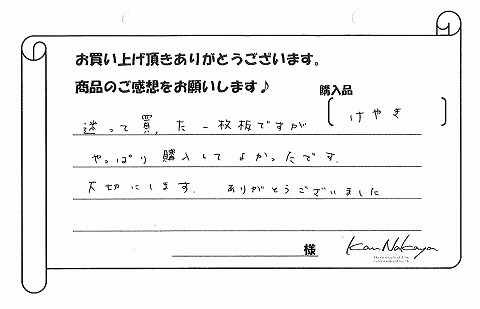 お買い上げ頂きありがとうございます。
商品のご感想をお願いします♪
購入品
けやき
迷って買った一枚板ですが
やっぱり購入してよかったです.
大切にします. ありがとうございました
様
Kan Nakaya